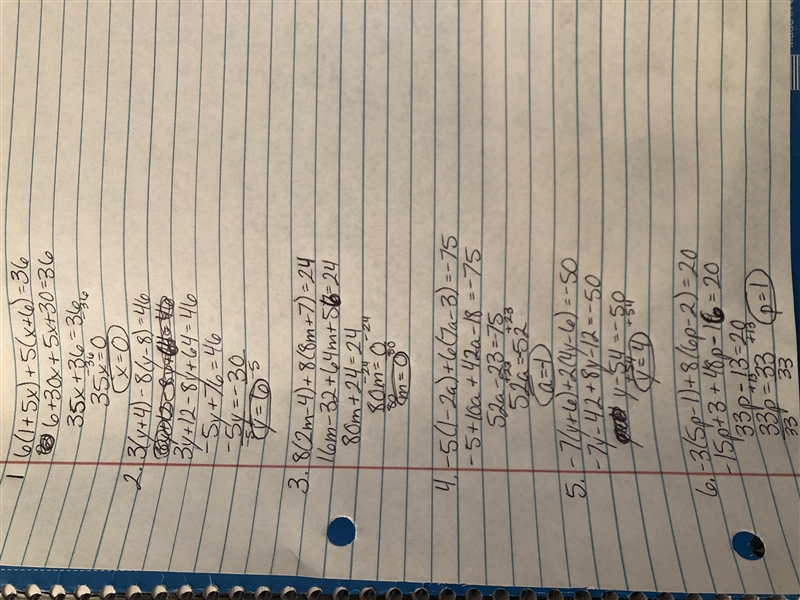 1 6(1+5x)+5(x+6)=36
6+30x+5x+30=36
35x+36=36
-36
35x=0
36
x=0
2. 3(y+4)-8(y-8)=46
3y+12-8y+64=46
-5y+76=46
-5y=-30
-5 -5
y=6
3. 8(2m-4)+8(8m+7)=24
16m-32+64m+56=24
80m+24=24
-24 -24
80m=0
80 80
m=0
4. -5(1-2a)+6(7a-3)=-75
-5+10a+42a-18=-75
52a-23=75
+23 +23
52a=-52
a=1
5. -7(y+6)+2(4y-6)=-50
-7y-42+8y-12=-50
y-54=-50
+54 +54
y=4
6. -3(5p-1)+8(6p-2)=20
-15p+3+48p-16=20
33p-13=20
+13 +13
33p=33
33 33
p=1